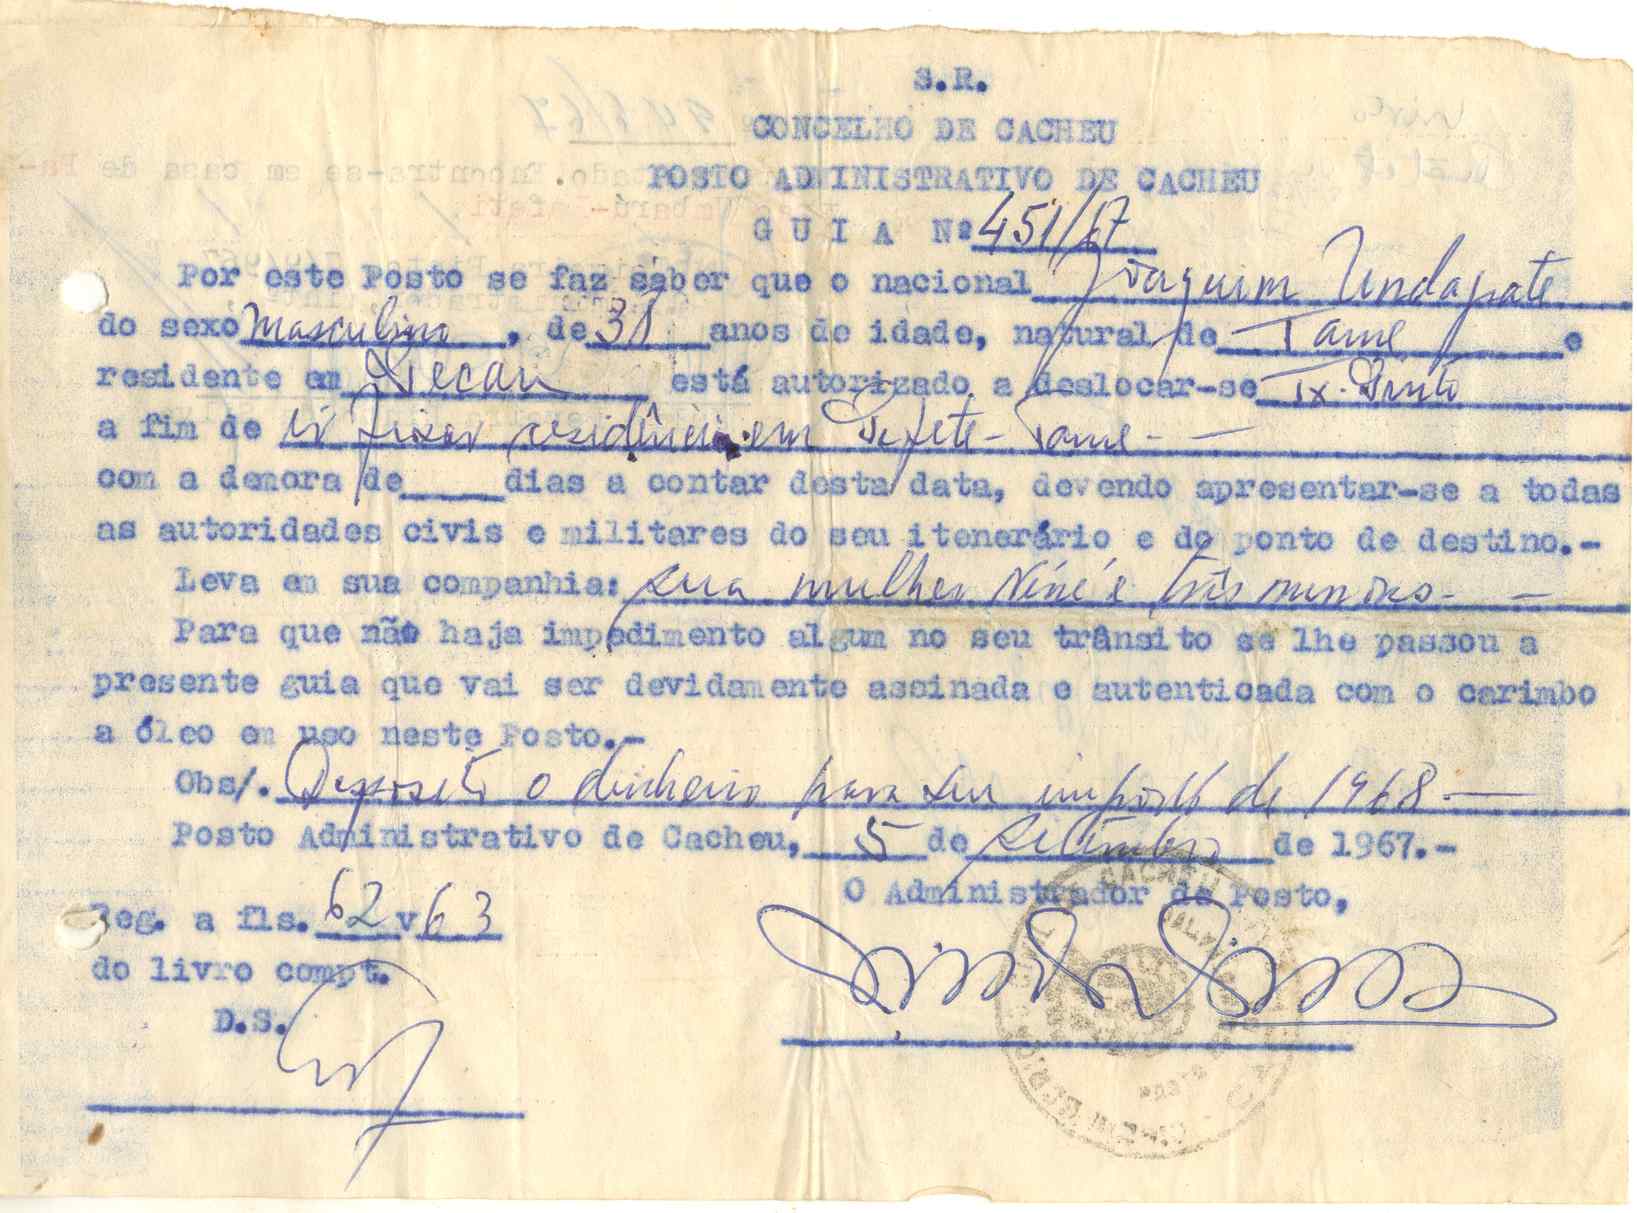 S.R.
CONCELHO DE CACHEU
POSTO ADMINISTRATIVO DE CACHEU
G U I A Nº 451/67
Por este Posto se faz sáber que o nacional Joaquim Undapate
do sexo masculino, de 38 anos de idade, natural de Tame e
residente em Pecau está autorizado a deslocar-se Tx. Pinto
a fim de ir fixar residência em Pefete - Tame - -
com a demora de____dias a contar desta data, devendo apresentar-se a todas
as autoridades civis e militares do seu itenerário e do ponto de destino.-
Leva em sua companhia: sua mulher Néné e três meninos - -
Para que não haja impedimento algum no seu trânsito se lhe passou a
presente guia que vai ser devidamente assinada e autenticada com o carimbo
a óleo em uso neste Posto.-
Obs/. Deposito o dinheiro para seu imposto de 1968.-
Posto Administrativo de Cacheu, 5 de setembro de 1967.-
O Administrador de Posto,
Reg. a fls. 62 v 63
do livro compt.
D.S.
CACHEU